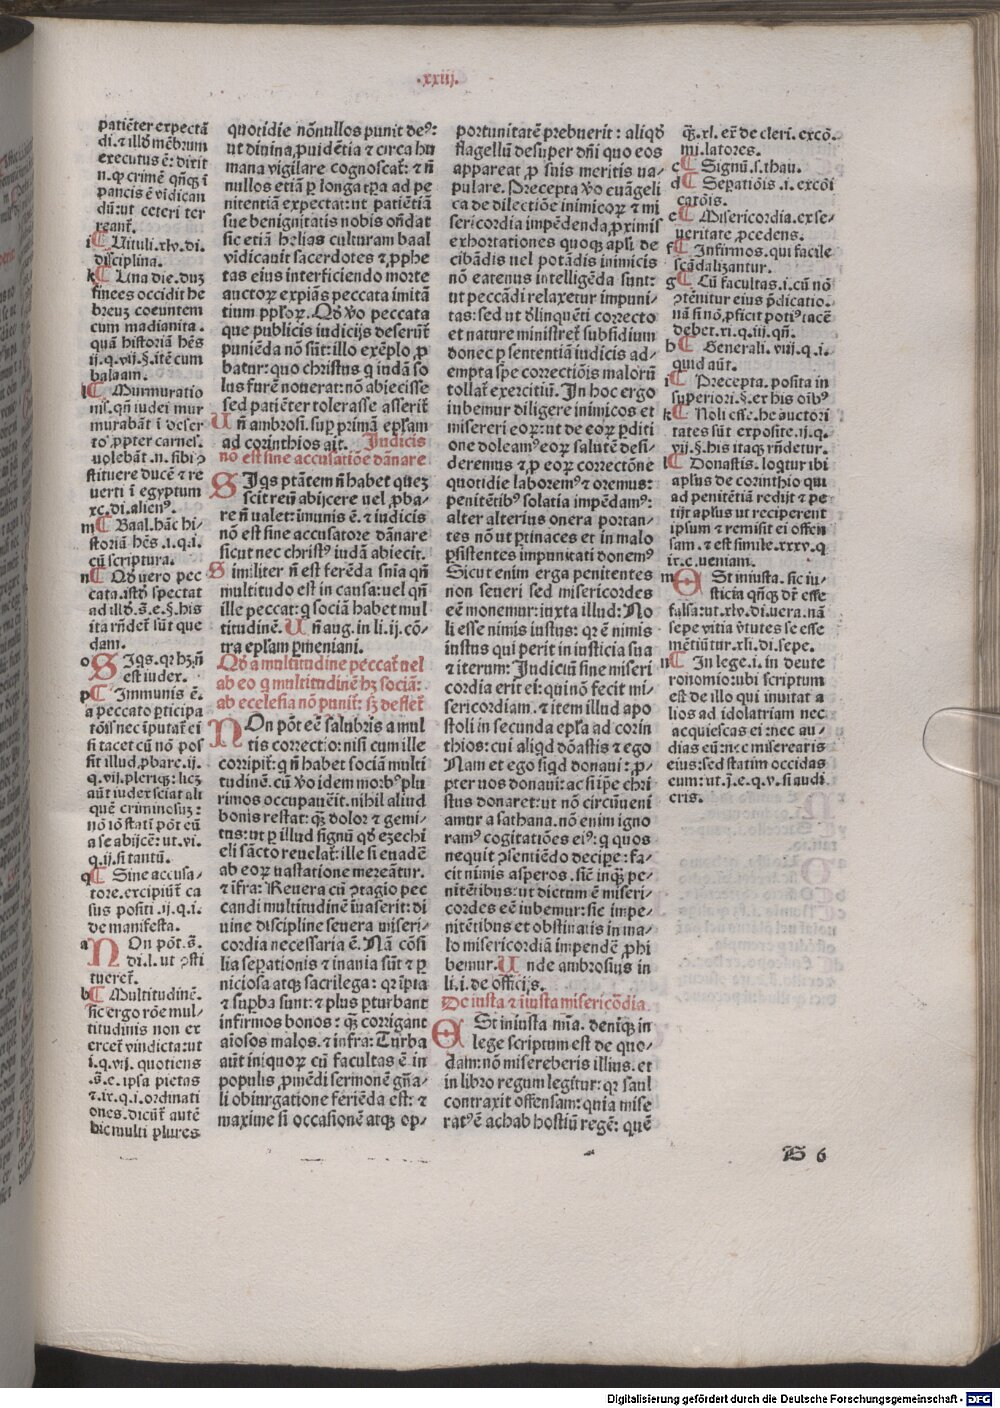 .xxiij.
patiēter expectā
di. ⁊ illoꝝ mēbrum
executus ē: dixit
n. ꝙ crimē qn̄qꝫ ī
paucis ē vīdican
dū: ut ceteri ter
reant̄.
i ¶ Uituli. xlv. di.
disciplina.
k ¶ Una die. duꝫ
finees occidit he
breuꝫ coeuntem
cum madianita.
quā historiā hēs
ij. q. vij. §. itē cum
balaam.
l ¶ Murmuratio
nis. qn̄ iudei mur
murabāt ī deser
to ꝓpter carnes.
uolebāt. n. sibi ↄ
stituere ducē ⁊ re
uerti ī egyptum
xc. di. alienꝰ.
m ¶ Baal. hāc hi⸗
storiā hēs. i. q. i.
cū scriptura.
n ¶ Qd̓ uero pec
cata. istd̓ spectat
ad illd̓. s̄. e. §. his
ita rn̄det̄ sūt que
dam.
o SIqs. qꝛ hꝫ. n̄
est iudex.
p ¶ Immunis ē.
a peccato ꝑticipa
tōis nec īputat̄ ei
si tacet cū nō pos
sit illud ꝓbare. ij.
q. vij. pleriqꝫ: licꝫ
aūt iudex sciat ali
quē criminosuꝫ:
nō iō statī pōt eū
a se abijcē: ut. vi.
q. ij. si tantū.
q ¶ Sine accusa⸗
tore. excipiūt̄ ca
sus positi. ij. q. i.
de manifesta.
a NOn pōt. s̄.
di. l. ut ↄsti
tueret̄.
b ¶ Multitudinē.
sic ergo rōe mul⸗
titudinis non ex
ercet̄ vindicta: ut
i. q. vij. quotiens
.s̄. e. ipsa pietas
⁊. ix. q. i. ordinati
ones. dicūt̄ autē
hic multi plures
quotidie nōnullos punit deꝰ:
ut diuina ꝓuidētia ⁊ circa hu
mana vigilare cognoscat̄: ⁊ n̄
nullos etiā ꝑ longa tꝑa ad pe
nitentiā expectat: ut patiētiā
sue benignitatis nobis on̄dat
sic etiā helias culturam baal
vīdicauit sacerdotes ⁊ ꝓphe
tas eius interficiendo morte
auctoꝝ expiās peccata imitā
tium ppl̓oꝝ. Qd̓ v̓o peccata
que publicis iudicijs deserūt̄
puniēda nō sūt: illo exēplo ꝓ
batur: quo christus q iudā so
lus furē nouerat: nō abiecisse
sed patiēter tolerasse asserit̄
Un̄ ambrosi. suꝑ primā epl̓am
ad corinthios ait. Iudicis
nō est sine accusatiōe dānare
SIqs ptātem n̄ habet queꝫ
scit reū abijcere uel ꝓba⸗
re n̄ ualet: īmunis ē. ⁊ iudicis
nō est sine accusatore dānare
sicut nec christꝰ iudā abiecit.
Similiter n̄ est ferēda sn̄ia qn̄
multitudo est in causa: uel qn̄
ille peccat: q sociā habet mul
titudinē. Un̄ aug. in li. ij. cō⸗
tra epl̓am ꝑmeniani.
Qd̓ a multitudine peccat̄ uel
ab eo q multitudinē hꝫ sociā:
ab ecclesia nō punit̄: sꝫ deflet̄
NOn pōt eē salubris a mul
tis correctio: nisi cum ille
corripit̄: q n̄ habet sociā multi
tudinē. cū v̓o idem morbꝰ plu
rimos occupauēit. nihil aliud
bonis restat: qꝫ dolor ⁊ gemi⸗
tus: ut ꝑ illud signū qd̓ ezechi
eli sācto reuelat̄: ille si euadē
ab eoꝝ uastatione mereātur.
⁊ īfra: Reuera cū ↄtagio pec
candi multitudinē īuaserit: di
uine discipline seuera miseri⸗
cordia necessaria ē. Nā cōsi
lia seꝑationis ⁊ inania sūt ⁊ ꝑ
niciosa atqꝫ sacrilega: qꝛ īpia
⁊ suꝑba sunt: ⁊ plus ꝑturbant
infirmos bonos: qꝫ corrigant
aīosos malos. ⁊ infra: Turba
aūt iniquoꝝ cū facultas ē in
populis ꝓmēdi sermonē gn̄a⸗
li obiurgatione feriēda est: ⁊
maxime si occasionē atqꝫ op⸗
portunitatē prebuerit: aliqd̓
flagellū desuper dn̄i quo eos
appareat ꝓ suis meritis ua⸗
pulare. Precepta v̓o euāgeli
ca de dilectiōe inimicoꝝ ⁊ mi
sericordia impēdenda ꝓximis
exhortationes quoqꝫ apl̓i. de
cibādis uel potādis inimicis
nō eatenus intelligēda sunt:
ut peccādi relaxetur impuni⸗
tas: sed ut d̓linquēti correcto
et nature ministret̄ subsidium
donec ꝑ sententiā iudicis ad⸗
empta spe correctiōis malorū
tollat̄ exercitiū. In hoc ergo
iubemur diligere inimicos et
misereri eoꝝ: ut de eoꝝ ꝑditi
one doleamꝰ eoꝝ salutē desi⸗
deremus ⁊ ꝓ eoꝝ correctōne
quotidie laboremꝰ ⁊ oremus:
penitētibꝰ solatia impēdamꝰ:
alter alterius onera portan⸗
tes nō ut ꝑtinaces et in malo
ꝑsistentes impunitati donemꝰ
Sicut enim erga penitentes
non seueri sed misericordes
eē monemur: iuxta illud: No
li esse nimis iustus: qꝛ ē nimis
iustus qui perit in iusticia sua
⁊ iterum: Iudiciū sine miseri
cordia erit ei: qui nō fecit mi⸗
sericordiam. ⁊ item illud apo
stoli in secunda epl̓a ad corin
thios: cui aliqd dōastis ⁊ ego
Nam et ego siqd donaui: ꝓ⸗
pter uos donaui: ac si ip̄e chri
stus donaret: ut nō circūueni
amur a sathana. nō enim igno
ramꝰ cogitatiōes eiꝰ: q quos
nequit ↄsentiēdo decipe: fa⸗
cit nimis asperos. sic̄ inqꝫ pe⸗
nitētibus: ut dictum ē miseri⸗
cordes eē iubemur: sic impe⸗
nitētibus et obstinatis in ma⸗
lo misericordiā impendē ꝓhi
bemur. Unde ambrosius in
li. i. de officijs.
De iusta ⁊ iiusta misericōdia.
ESt iniusta mīa. deniqꝫ in
lege scriptum est de quo⸗
dam: nō misereberis illius. et
in libro regum legitur: qꝛ saul
contraxit offensam: quia mise
ratꝰ ē achab hostiū regē: quē
qꝫ. xl. er̄ de cleri. excō.
mi. latores.
c ¶ Signū. s. thau.
d ¶ Seꝑatiōis. i. excōi
catōis.
e ¶ Misericordia. ex se⸗
ueritate ꝓcedens.
f ¶ Infirmos. qui facile
scādalizantur.
g ¶ Cū facultas. i. cū nō
ↄtēnitur eius p̄dicatio.
nā si nō ꝓficit potiꝰ tacē
debet. xi. q. iij. qn̄.
h ¶ Generali. viij. q. i.
quid aūt.
i ¶ Precepta. posita in
superiori. §. ex his oībꝰ
k ¶ Noli esse. he auctori
tates sūt exposite. ij. q.
vij. §. his itaqꝫ rn̄detur.
l ¶ Donastis. loqtur ibi
apl̓us de corinthio qui
ad penitētiā redijt ⁊ pe
tijt apl̓us ut reciperent
ipsum ⁊ remisit ei offen
sam. ⁊ est simile. xxxv. q
ix. c. ueniam.
m ESt iniusta. sic iu⸗
sticia qn̄qꝫ dr̄ esse
falsa: ut. xlv. di. uera. nā
sepe vitia v̓tutes se esse
mētiūtur. xli. di. sepe.
n ¶ In lege. i. in deute
ronomio: ubi scriptum
est de illo qui inuitat a
lios ad idolatriam nec
acquiescas ei: nec au⸗
dias eū: nec miserearis
eius: sed statim occidas
eum: ut. j. e. q. v. si audi
eris.
H 6
Digitalisierung gefördert durch die Deutsche Forschungsgemeinschaft - DFG